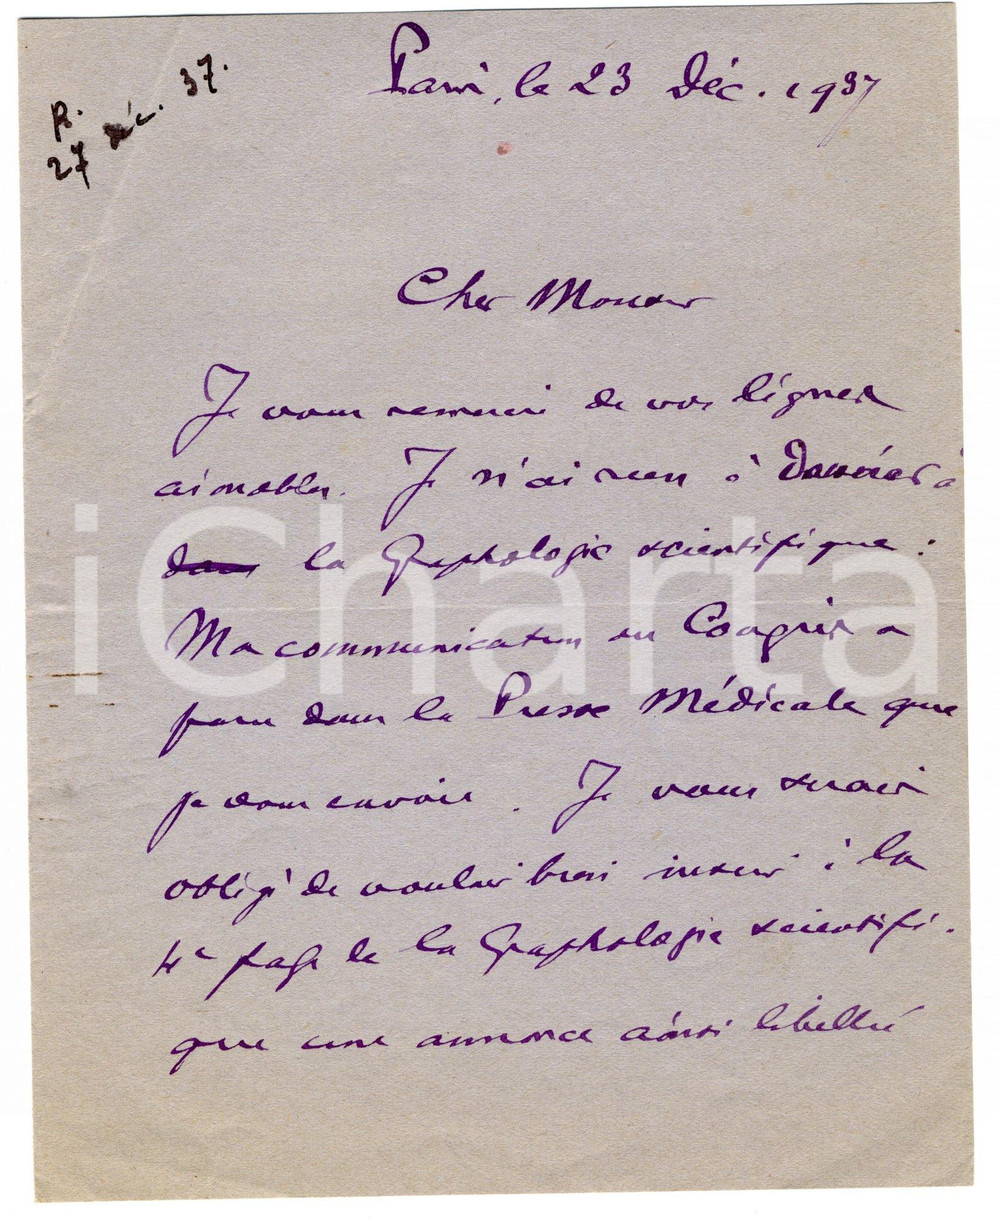 R.
27 déc. 37.
Paris, le 23 Déc. 1937
Cher Monsieur
Je vous remercie de vos lignes
aimables. Je n'ai rien à à
dans la Graphologie scientifique :
Ma communication au Congrès a
paru dans la Presse Médicale que
je vous envoie. Je vous serais
obligé de vouloir bien insérer à la
4e page de la Graphologie scientifi-
que une annonce ainsi libellée
iCharta